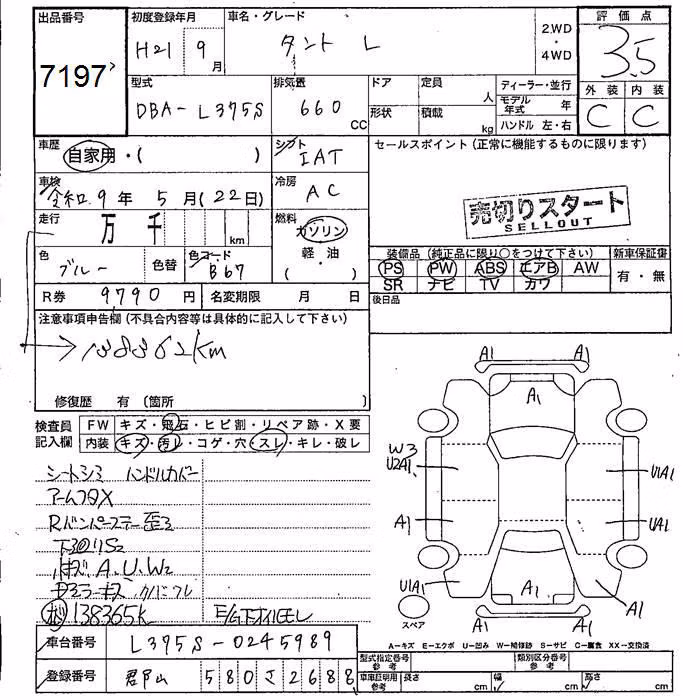 出品番号
7197
初度登録年月
H21 9月
車名・グレード
タント L
2.WD
・
4WD
評価点
3.5
外装 内装
C C
型式
DBA-L375S
排気量
660 CC
ドア
定員 人
形状
積載 kg
ディーラー・並行
モデル年式 年
ハンドル 左・右
車歴
自家用・( )
シフト
IAT
セールスポイント (正常に機能するものに限ります)
車検
令和9年 5月(22日)
冷房
AC
売切りスタート
SELLOUT
走行
万 千 km
燃料
ガソリン
軽・油
( )
色
ブルー
色替
色コード
B67
装備品 (純正品に限り○をつけて下さい)
新車保証書
PS PW ABS エアB AW
SR ナビ TV カワ
有・無
R券 9790円
名変期限 月 日
後日品
注意事項申告欄 (不具合内容等は具体的に記入して下さい)
138362km
修復歴 有 (箇所
検査員記入欄
FW キズ・飛石・ヒビ割・リペア跡・X要
内装 キズ・汚レ・コゲ・穴・スレ・キレ・破レ
シートシミ ハンドルカバー
アームフタX
Rバンパーステー歪ミ
キズ A.U.W2
138365K
A1 A1
A1
W3
U2A1
U1A1
A1
UA1
U1A1
A1
A1
A1 A1
スペア
A-キズ E-エクボ U-凹み W-補修跡 S-サビ C-腐食 XX-交換済
車台番号 L375S-0245989
登録番号 郡山 580 さ 2688
型式指定番号 参考
類別区分番号 参考
車庫証明用 参考
長さ cm
幅 cm
高さ cm